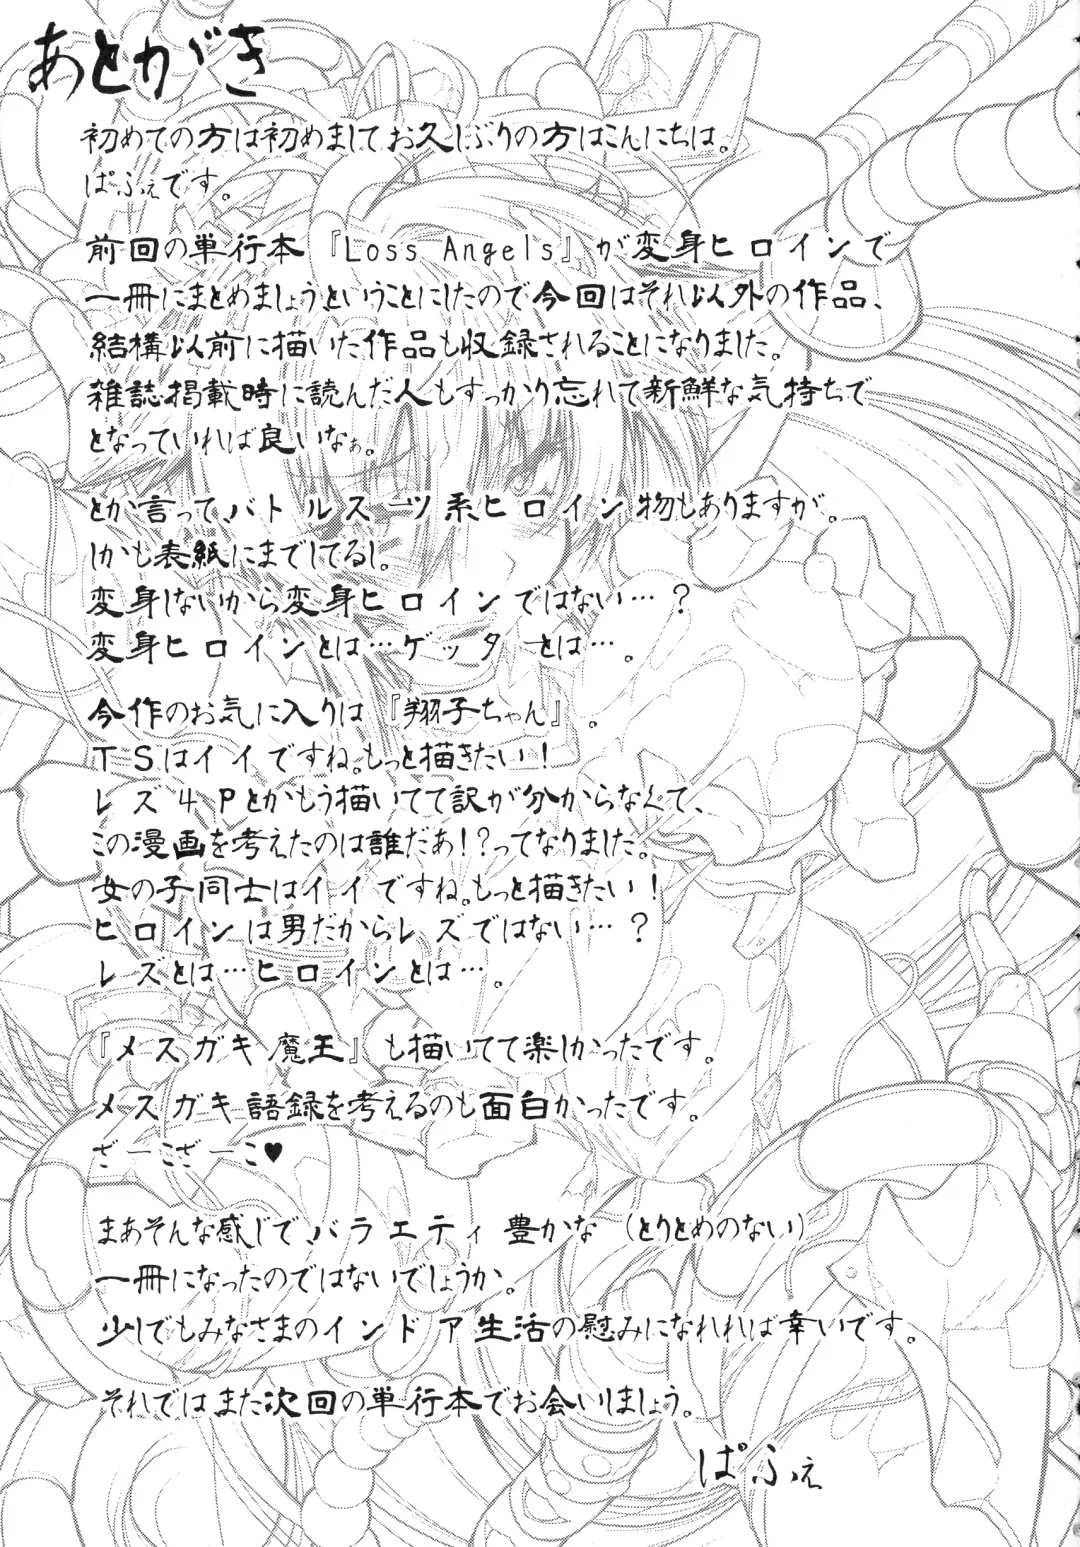 あとがき
初めての方は初めましてお久しぶりの方はこんにちは。
ぱふぇです。
前回の単行本『Loss Angels』が変身ヒロインで
一冊にまとめましょうということにしたので今回はそれ以外の作品、
結構以前に描いた作品も収録されることになりました。
雑誌掲載時に読んだ人もすっかり忘れて新鮮な気持ちで
となっていれば良いなぁ。
とか言って、バトルスーツ系ヒロイン物もありますが。
しかも表紙にまでしてるし。
変身しないから変身ヒロインではない…？
変身ヒロインとは…ゲッターとは…。
今作のお気に入りは『翔子ちゃん』。
TSはイイですね。もっと描きたい！
レズ4Pとかもう描いてて訳が分からなくて、
この漫画を考えたのは誰だあ！？ってなりました。
女の子同士はイイですね。もっと描きたい！
ヒロインは男だからレズではない…？
レズとは…ヒロインとは…。
『メスガキ魔王』も描いてて楽しかったです。
メスガキ語録を考えるのも面白かったです。
ざーこざーこ♥
まあそんな感じでバラエティ豊かな（とりとめのない）
一冊になったのではないでしょうか。
少しでもみなさまのインドア生活の慰みになれれば幸いです。
それではまた次回の単行本でお会いしましょう。
ぱふぇ